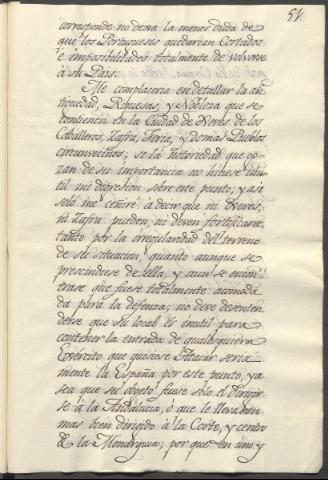 51.
corresponde no dexa la menor duda de
que los Portugueses quedarian Cortados
è imposibilitados totalmente de volverse
à su Pais.
Me complaceria en detallar la an
tiguedad, Riquesas, y Nobleza que se
contienen en la Ciudad de Xerès de los
Caballeros, Zafra, Feria, y demas Pueblos
circunvecinos, si la notoriedad que go
zan de su importancia no hiciese inu
til mi digresion sobre este punto; y asi
solo me ceñirè à decir que ni Xerès,
ni Zafra pueden, ni deven fortificarse,
tanto por la irregularidad del terreno
de su situacion, quanto aunque se
prescindiese de ella, y aun se encon
trase que fuese totalmente acomoda
da para la defenza; no deve desenten
derse que su local es inutil para
contener la entrada de qualesquiera
Exèrcito que quisiese Atacar seria
mente la España por este punto, ya
sea que su objeto fuese solo el dirigir
se à la Andalucia, ò que le lleva
mas bien dirigido à la Corte, y centro
de la Monarquia; por que en uno, y